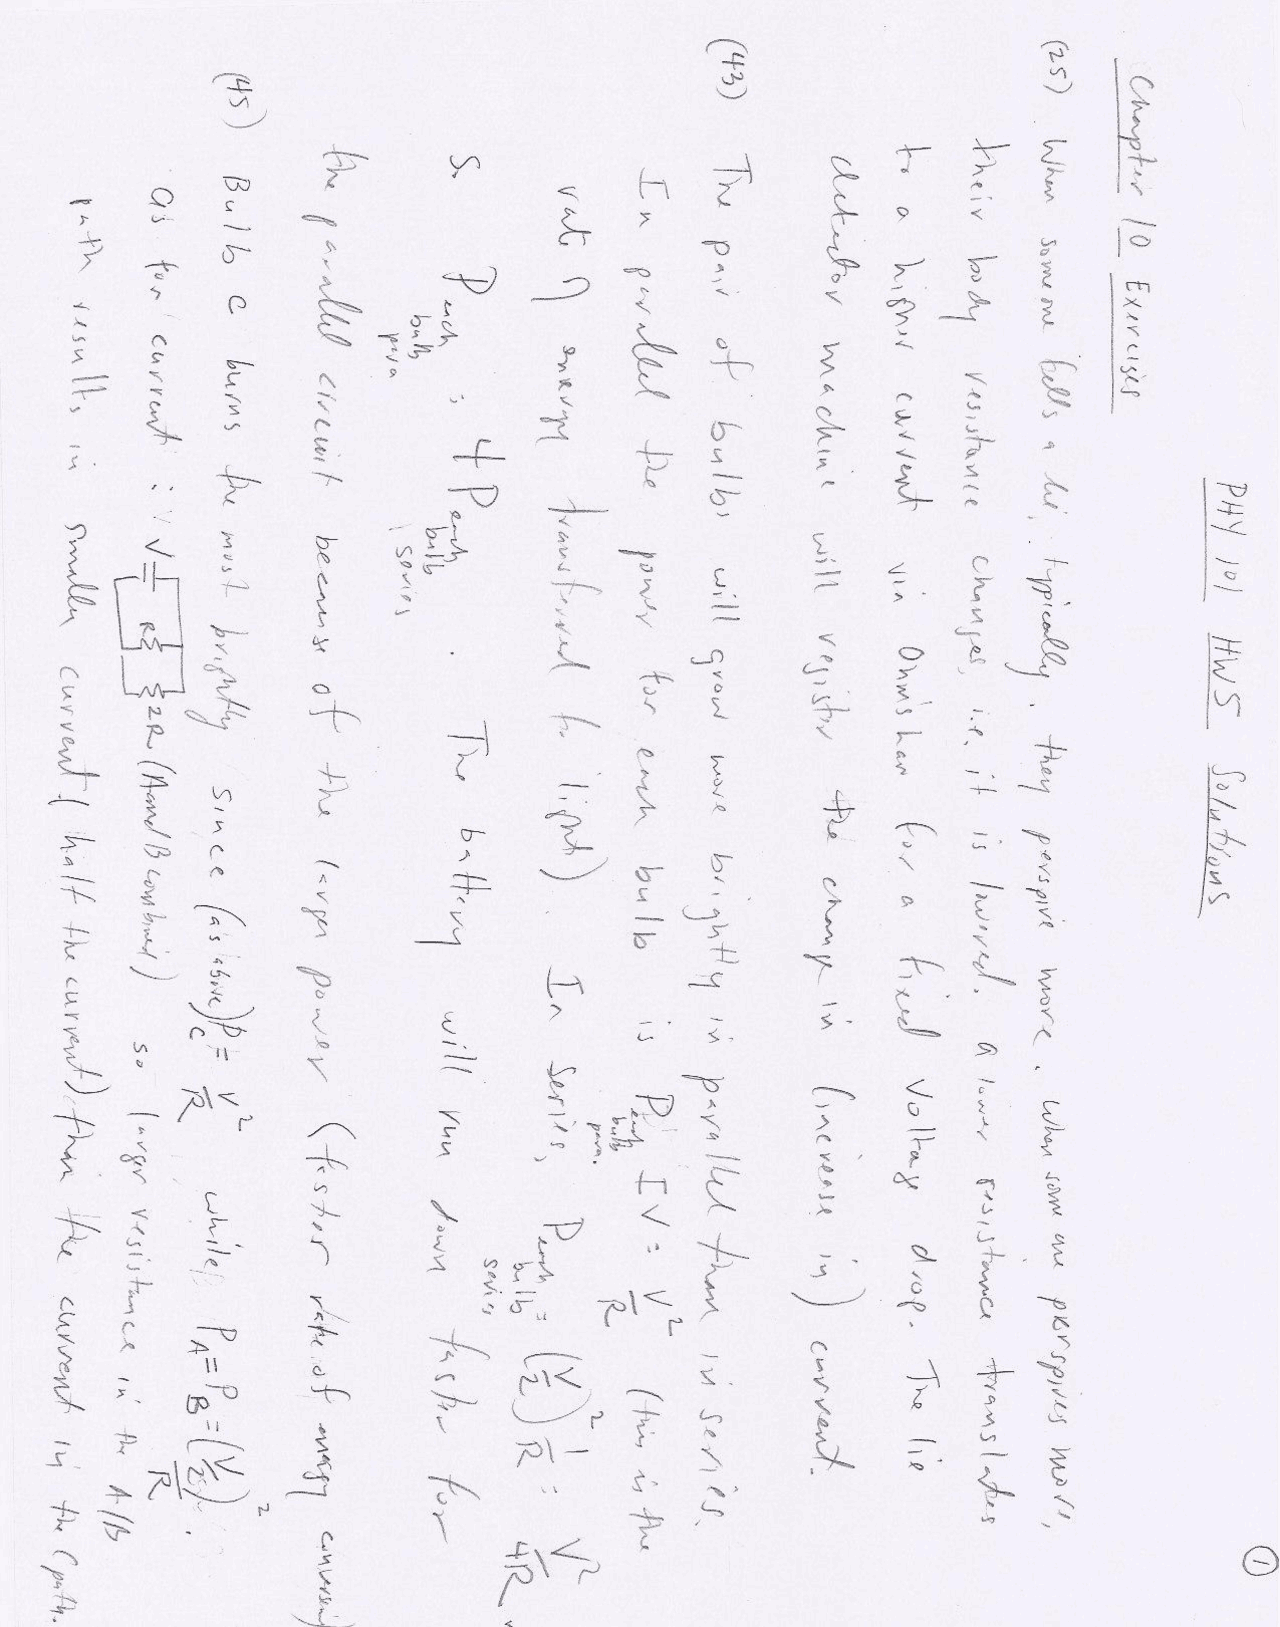 ①
PHY 101 HW5 Solutions
Chapter 10 Exercises
(25) When someone tells a lie, typically, they perspire more. When some one perspires more,
their body resistance changes, i.e. it is lowered. a lower resistance translates
to a higher current via Ohm's law for a fixed voltage drop. The lie
detector machine will register the change in (increase in) current.
(43) The pair of bulbs will grow more brightly in parallel than in series.
In parallel the power for each bulb is P each bulb para. = IV = V²/R (this is the
rate of energy transferred to light). In series, P each bulb series = (V/2)² 1/R = V²/4R.
So P each bulb para = 4 P each bulb series. The battery will run down faster for
the parallel circuit because of the larger power (faster rate of energy conversion)
(45) Bulb C burns the most brightly since (as above) P_C = V²/R while, P_A = P_B = (V/2)²/R.
as for current : V R 2R (A and B combined) so larger resistance in the A/B
path results in smaller current (half the current) than the current in the C path.